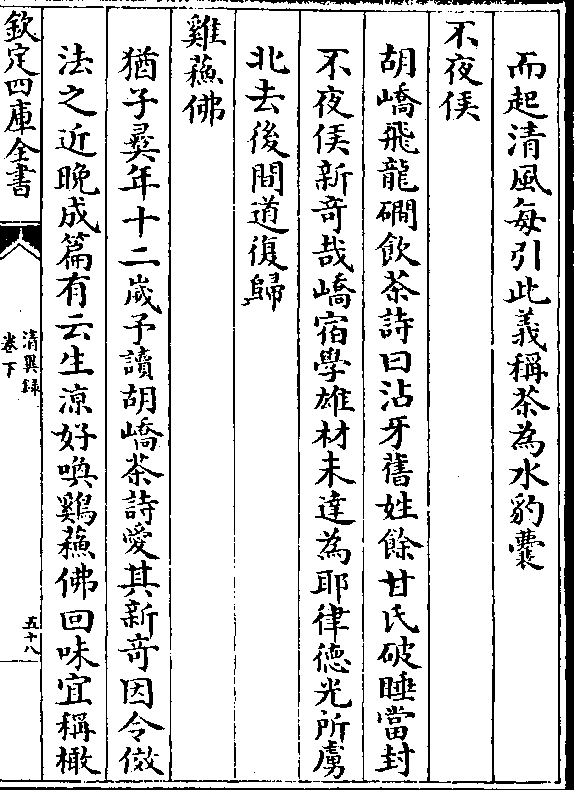 而起清風每引此義稱茶為水豹囊
不夜侯
胡嶠飛龍磵飲茶詩曰沾牙舊姓餘甘氏破睡當封
不夜侯新奇哉嶠宿學雄材未達為耶律德光所虜
北去後間道復歸
雞蘓佛
猶子彛年十二嵗予讀胡嶠茶詩愛其新奇因令傚
法之近晚成篇有云生凉好喚鷄蘓佛回味宜稱橄
欽定四庫全書
清異録
卷下
五十八